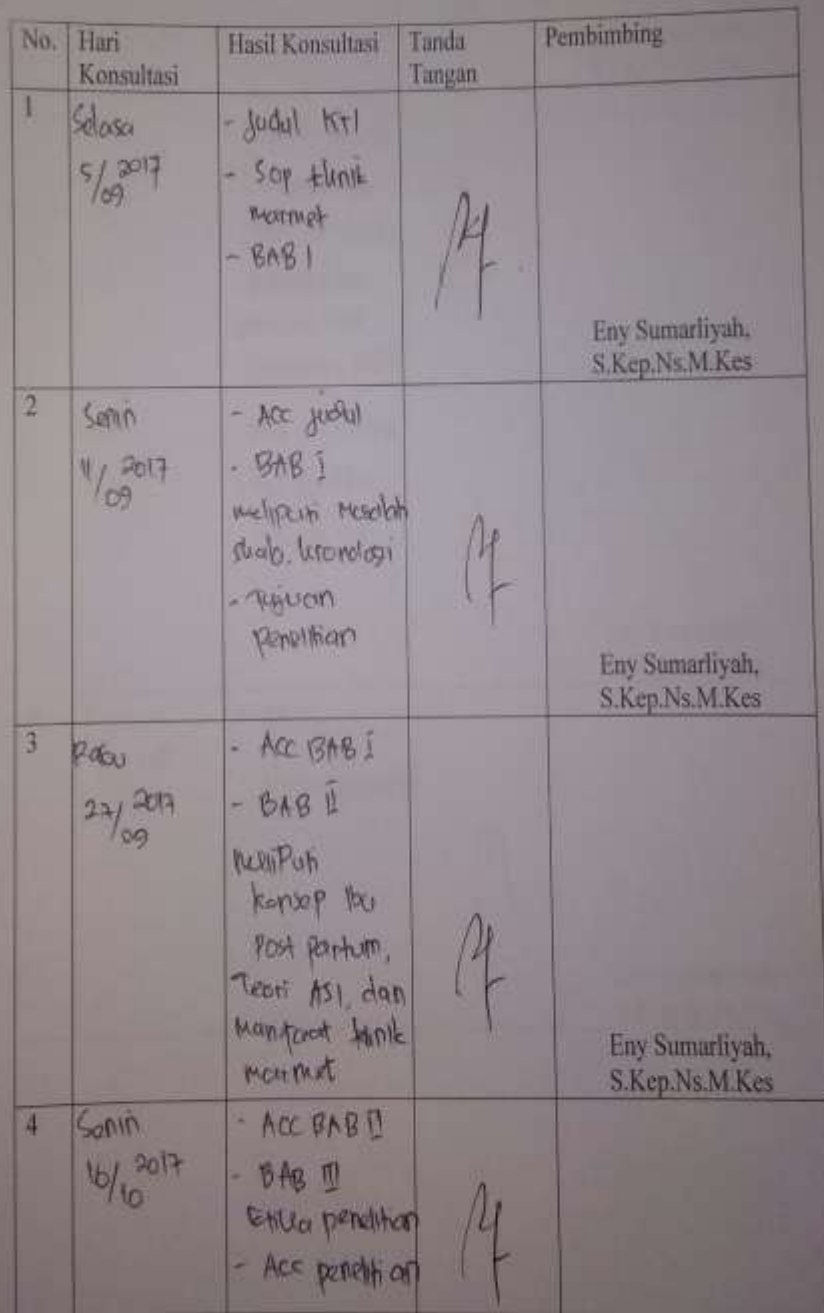 No. Hari Konsultasi Hasil Konsultasi Tanda Tangan Pembimbing
1 Selasa
5/09 2017
- Judul KTI
- Sop teknik
marmet
- BAB I
Eny Sumarliyah,
S.Kep.Ns.M.Kes
2 Senin
11/09 2017
- Acc judul
- BAB I
meliputi Masalah
skala, kronologi
- Tujuan
penelitian
Eny Sumarliyah,
S.Kep.Ns.M.Kes
3 Rabu
27/09 2017
- Acc BAB I
- BAB II
meliputi
konsep Ibu
Post partum,
Teori ASI, dan
Manfaat teknik
marmet
Eny Sumarliyah,
S.Kep.Ns.M.Kes
4 Senin
16/10 2017
- ACC BAB II
- BAB III
Etika penelitian
- Acc penelitian